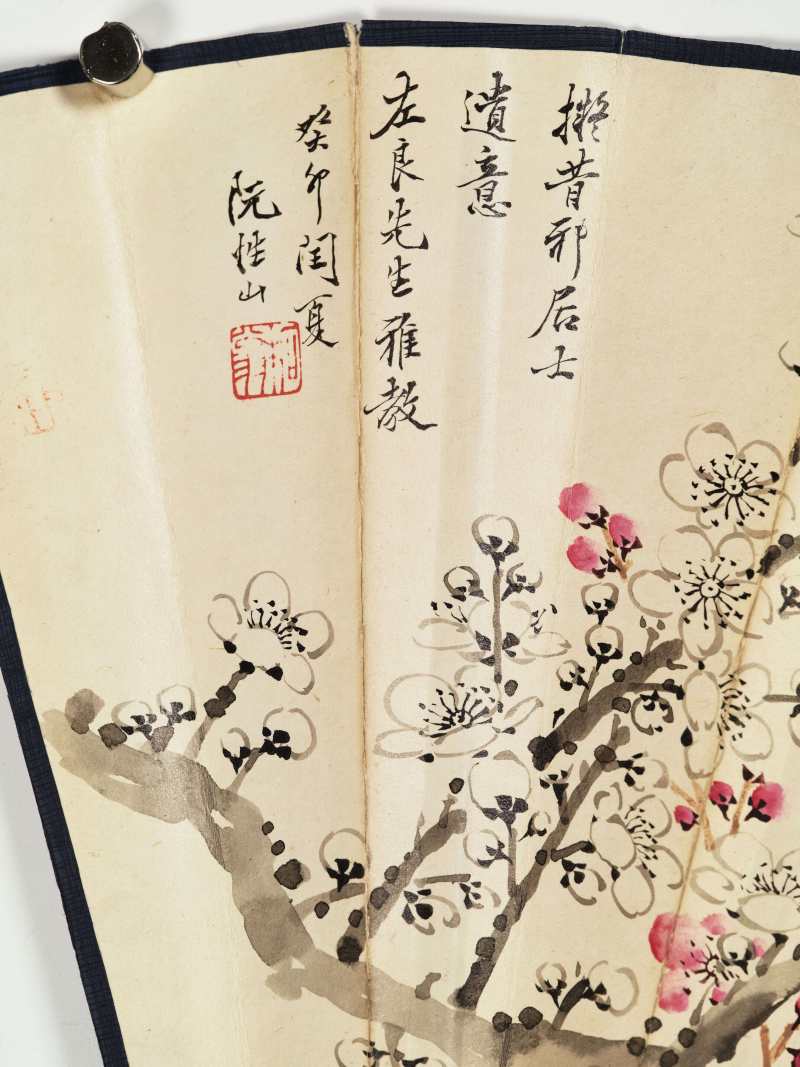 擬昔邪居士
遺意
左良先生雅教
癸卯閏夏
阮性山